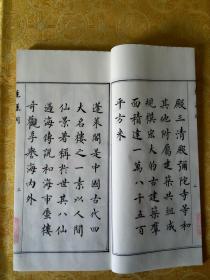 殿三清殿彌陀寺等和
其他附屬建築共組成
規模宏大的古建築羣
面積達一萬八千五百
平方米
蓬萊閣是中國古代四
大名樓之一素以人間
仙景著稱於世其八仙
過海傳說和海市蜃樓
奇觀享譽海内外